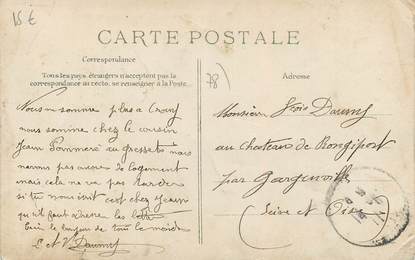 15 €
CARTE POSTALE
Correspondance
Tous les pays étrangers n'acceptent pas la
correspondance au recto, se renseigner à la Poste.
78)
Adresse
Nous somme plus a
nous somme chez le cousin
Jean Pommeré au gressets nous
navons pas avoir de logement
mais cela ne va pas tarder
si tu nous écrit cest chez Jean
qu'il faut adresse les
le bonjour de tout le monde
E et V Daumy
Monsieur Daumy
au chateau de Rongiport
par Gargenville
Seine et Oise